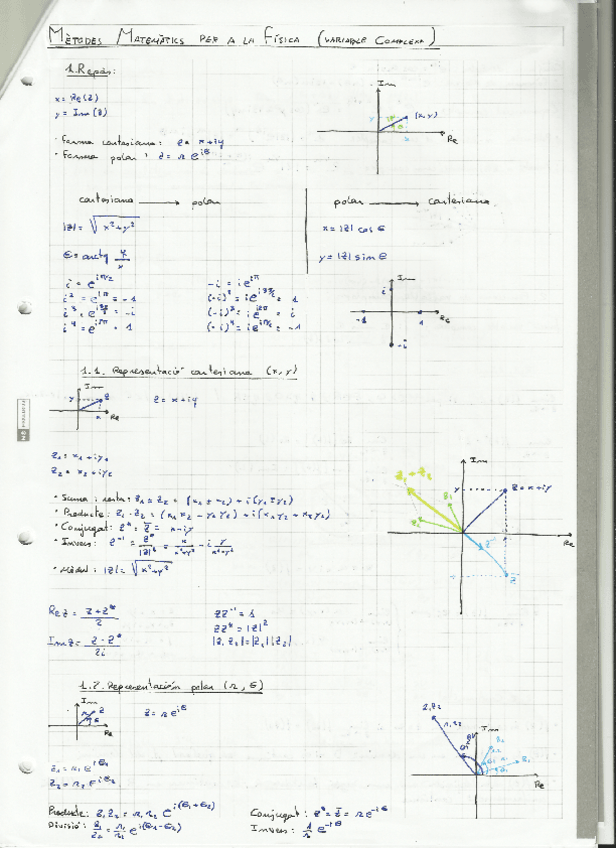 MÈTODES MATEMÀTICS PER A LA FÍSICA (VARIABLE COMPLEXA)
1. Repàs:
x = Re(z)
y = Im(z)
· Forma cartesiana: z = x+iy
· Forma polar: z = r e^{iθ}
Im
(x,y)
y
θ
x
Re
cartesiana → polar
polar → cartesiana
|z| = √(x²+y²)
θ = arctg y/x
x = |z| cos θ
y = |z| sin θ
i = e^{iπ/2}
i² = e^{iπ} = -1
i³ = e^{i3π/2} = -i
i⁴ = e^{i2π} = 1
(-i)³ = i
Im
i
-1
1
Re
-i
1.1. Representació cartesiana (x,y)
Im
y
z
x
Re
z = x+iy
z₁ = x₁+iy₁
z₂ = x₂+iy₂
· Suma i resta: z₁ ± z₂ = (x₁ ± x₂) + i(y₁ ± y₂)
· Producte: z₁·z₂ = (x₁x₂ - y₁y₂) + i(x₁y₂ + x₂y₁)
· Conjugat: z* = z̄ = x-iy
· Invers: z⁻¹ = z*/|z|² = x/(x²+y²) - i y/(x²+y²)
· Mòdul: |z| = √(x²+y²)
Im
z₁+z₂
z₁
z₂
y
z = x+iy
Re
z⁻¹
z̄
Re z = (z+z*)/2
Im z = (z-z*)/2i
zz⁻¹ = 1
zz* = |z|²
|z₁z₂| = |z₁||z₂|
1.2. Representación polar (r, θ)
Im
r
z
θ
Re
z = r e^{iθ}
z₁ = r₁ e^{iθ₁}
z₂ = r₂ e^{iθ₂}
z₁z₂
r₁r₂
Im
Re
Producte: z₁z₂ = r₁r₂ e^{i(θ₁+θ₂)}
Divisió: z₁/z₂ = r₁/r₂ e^{i(θ₁-θ₂)}
Conjugat: z* = z̄ = r e^{-iθ}
Invers: 1/r e^{-iθ}